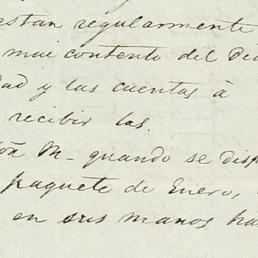 estan regularmente
mui contento del
dad y las cuentas á
recibir las.
M_ quando se disp
paquete de Enero,
en sus manos ha